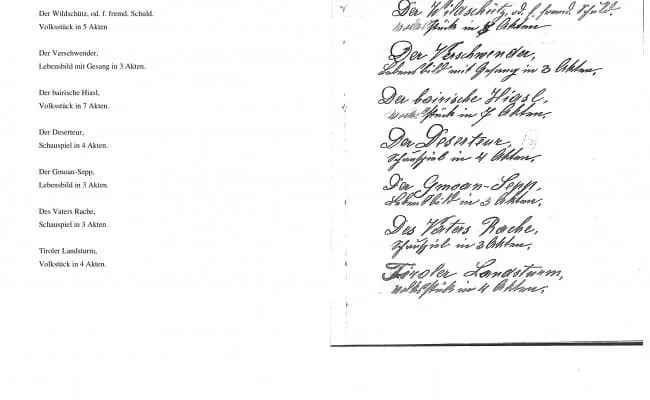 Der Wildschütz, od. f. fremd. Schuld.
Volksstück in 5 Akten
Der Verschwender,
Lebensbild mit Gesang in 3 Akten.
Der bairische Hiasl,
Volksstück in 7 Akten.
Der Deserteur,
Schauspiel in 4 Akten.
Der Gmoan-Sepp,
Lebensbild in 3 Akten.
Des Vaters Rache,
Schauspiel in 3 Akten.
Tiroler Landsturm,
Volksstück in 4 Akten.
Der Wildschütz, od. f. fremd. Schuld.
Volksstück in 5 Akten
Der Verschwender,
Lebensbild mit Gesang in 3 Akten.
Der bairische Hiasl,
Volksstück in 7 Akten.
Der Deserteur,
Schauspiel in 4 Akten.
Der Gmoan-Sepp,
Lebensbild in 3 Akten.
Des Vaters Rache,
Schauspiel in 3 Akten.
Tiroler Landsturm,
Volksstück in 4 Akten.